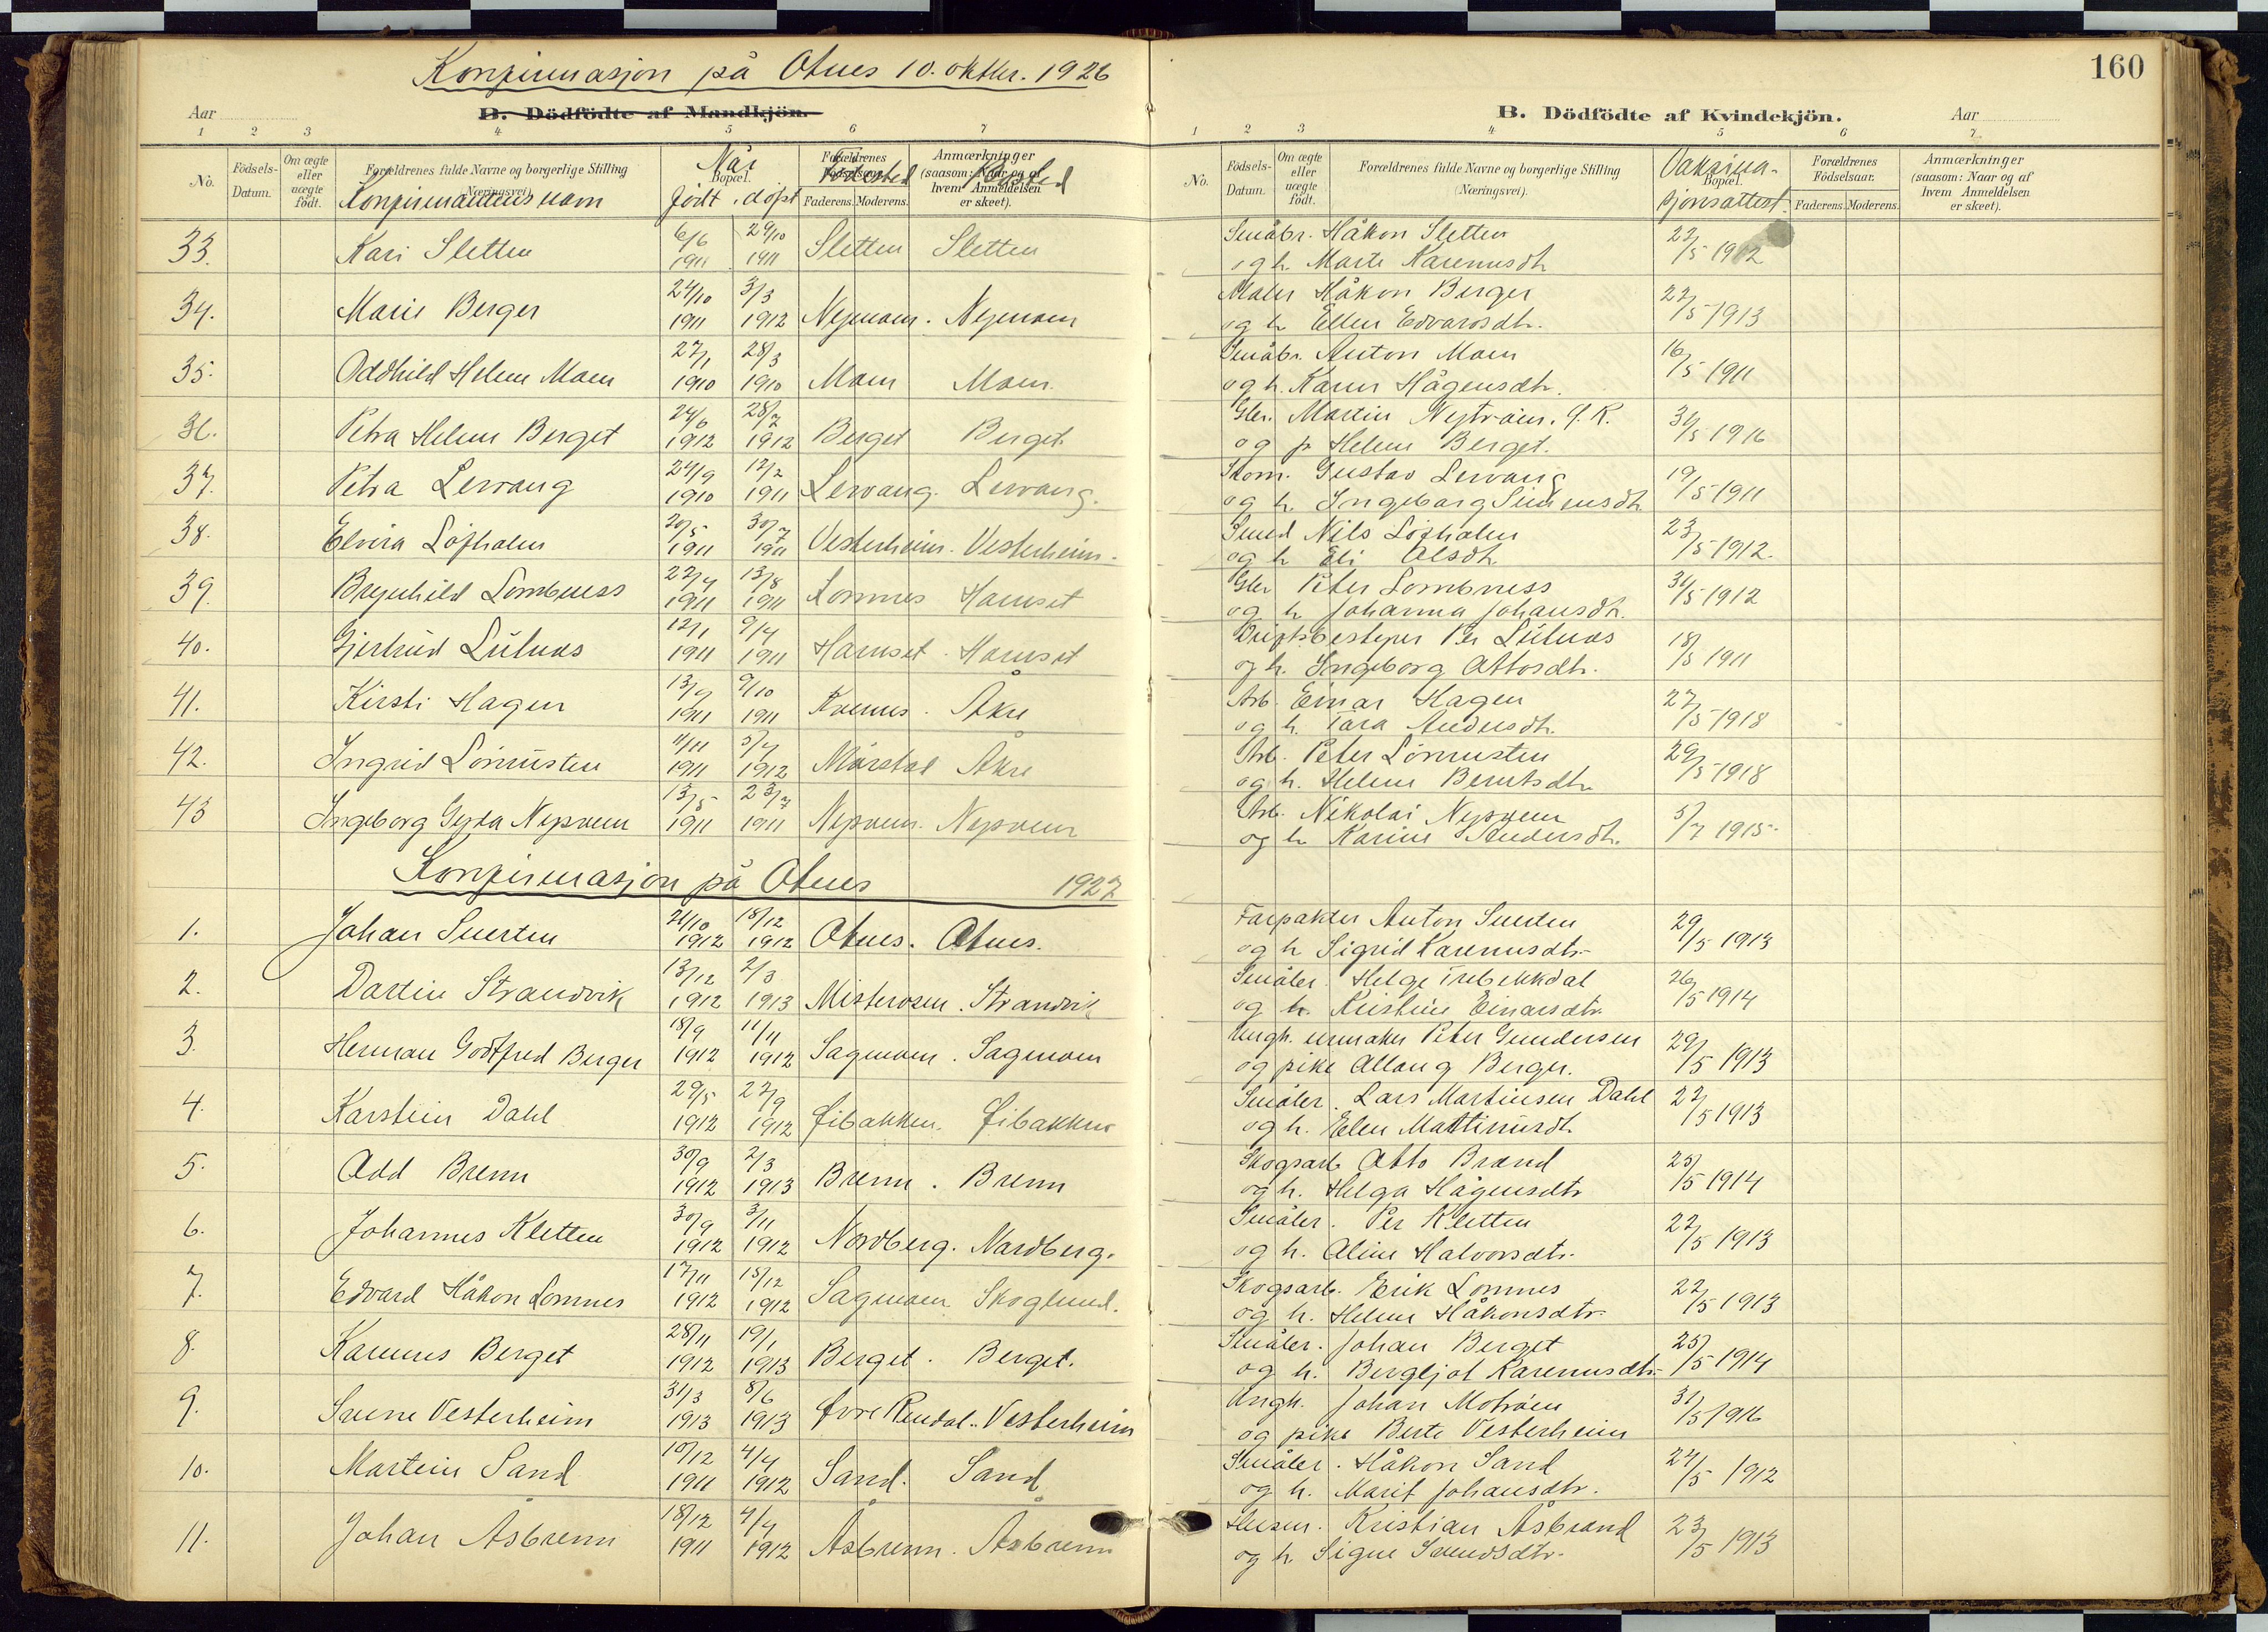 Konfirmasjon på Otnes 10. oktbr. 1926
160
Aar
B. Dödfödte af Mandkjön.
B. Dödfödte af Kvindekjön.
Aar
1 2 3 4 5 6 7
1 2 3 4 5 6 7
No. Födsels-Datum. Om ægte eller uægte födt. Forældrenes fulde Navne og borgerlige Stilling (Næringsvei). Bopæl. Forældrenes Födselsaar. Faderens. Moderens. Anmærkninger (saasom: Naar og af hvem Anmeldelsen er skeet).
Konfirmantens navn Når født. døpt Fødested Bosted
No. Födsels-Datum. Om ægte eller uægte födt. Forældrenes fulde Navne og borgerlige Stilling (Næringsvei). Bopæl. Forældrenes Födselsaar. Faderens. Moderens. Anmærkninger (saasom: Naar og af hvem Anmeldelsen er skeet).
Vaksina-sjonsattest.
33. Kari Sletten 6/6 1911 29/10 1911 Sletten Sletten Småbr. Håkon Sletten 22/5 1912
og h. Marte Karenusdt.
34. Marie Berger 24/10 1911 3/3 1912 Nymoen. Nymoen Maler Håkon Berger 22/5 1913
og h. Ellen Edvardsdt.
35. Oddhild Helene Moen 27/1 1910 28/3 1910 Moen Moen. Småbr. Anton Moen 16/5 1911
og h. Karen Hågensdt.
36. Petra Helene Berget 24/6 1912 28/7 1912 Berget Berget. Gbr. Martin Nytrøen. 31/5 1916
og p. Helene Berget.
37. Petra Lervang 24/9 1910 12/2 1911 Lervang. Lervang. Skom. Gustav Lervang 19/5 1911
og h. Ingeborg
38. Elvira Løfholm 20/5 1911 30/7 1911 Vesterheim. Vesterheim. Nils Løfholm 23/5 1912.
og h. Eli Olsdt.
39. Brynhild Lombness 22/4 1911 13/8 1911 Lomnes Harnset Gbr. Peter Lombness 31/5 1912
og h. Johanna Johansdt.
40. Gjertrud Lutnæs 12/1 1911 9/4 1911 Harnset. Harnset Driftsbestyrer Per Lutnæs 18/5 1911
og h. Ingeborg Ottosdt.
41. Kirsti Hagen 1911 9/10 1911 Kvernes. Åkre Arb. Einar Hagen 27/5 1918
og h. Tora Andersdt.
42. Ingrid Lønrusten 11/11 1911 5/4 1912 Åkre Arb. Peter Lønrusten 29/5 1918
og h. Helene Berntsdt.
43 Ingeborg Gyda Nysveen 13/5 1911 23/7 1911 Nysveen. Nysveen Arb. Nikolai Nysveen 5/7 1915.
og h. Karine Andersdt.
Konfirmasjon på Otnes 1927
1. Johan Snerten 21/10 1912 15/12 1912 Otnes. Otnes. Forpakter Anton Snerten 29/5 1913
og h. Sigrid Karenusdtr.
2. Dartin Strandvik 13/12 1912 2/3 1913 Misterosen. Strandvik Småbr. Helge Trebekkdal 26/5 1914
og h. Kristine Einarsdtr.
3. Herman Godtfred Berger 15/9 1912 11/11 1912 Sagmoen. Sagmoen Ungk. urmaker Peter Gundersen 29/5 1913
og pike Allaug Berger.
4. Karstein Dahl 29/5 1912 22/9 1912 Libakken. Libakken Småbr. Lars Martinsen Dahl 22/5 1913
og h. Elen Mattinusdt.
5. Odd Brenn 30/9 1912 2/3 1913 Brenn. Brenn Skogsarb. Otto Brænd 25/5 1914
og h. Helga Hågensdtr.
6. Johannes Kletten 30/9 1912 3/11 1912 Nordberg. Nordberg. Småbr. Per Kletten 22/5 1913
og h. Oline Halvorsdtr.
7. Edvard Håkon Lomnes 17/11 1912 15/12 1912 Sagmoen Skoglund. Skogsarb. Erik Lomnes 22/5 1913
og h. Helene Håkonsdtr.
8. Karenus Berget 28/11 1912 19/1 1913 Berget. Berget. Småbr. Johan Berget 25/5 1914
og h. Bergljot Karenusdtr.
9. Sverre Vesterheim 31/3 1913 8/6 1913 Øvre Rendal. Vesterheim Ungk. Johan Motrøen 31/5 1916
og pike Berte Vesterheim
10. Martein Sand 10/12 1911 4/4 1912 Sand. Sand Småbr. Håkon Sand 24/5 1912
og h. Marit Johansdtr.
11. Johan Åsbrenn 18/12 1911 4/4 1912 Åsbrenn. Åsbrenn Husm. Kristian Åsbrænd 23/5 1913
og h. Signe Svendsdtr.